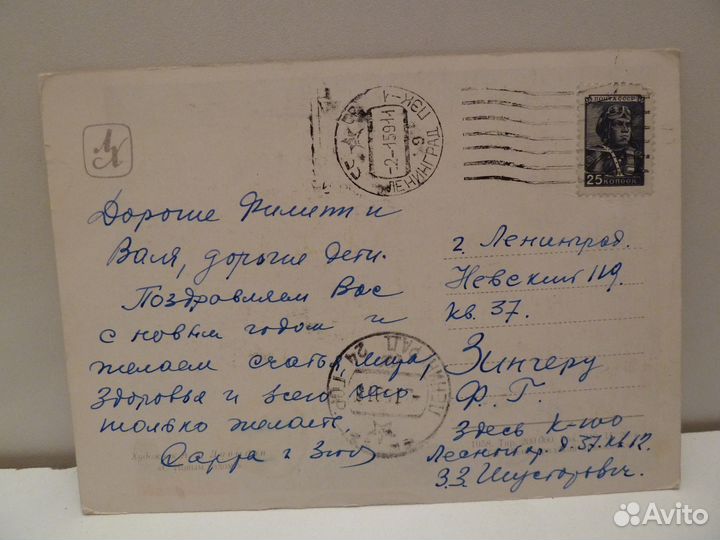 ПОЧТА СССР
25 КОПЕЕК
ЛЕНИНГРАД
ПЭК-1
-2-1 59 11
9
ЛХ
Дорогие Филетт и
Валя, дорогие дети.
Поздравляем Вас
с новым годом и
желаем счастья, мира,
здоровья и всего
только желаете
Сарра и
г. Ленинград.
Невский 119.
кв. 37.
Зингеру
Ф. Г.
Здесь
Лесной пр. д. 37. кв. 12.
З.З. Шусторович.
Avito